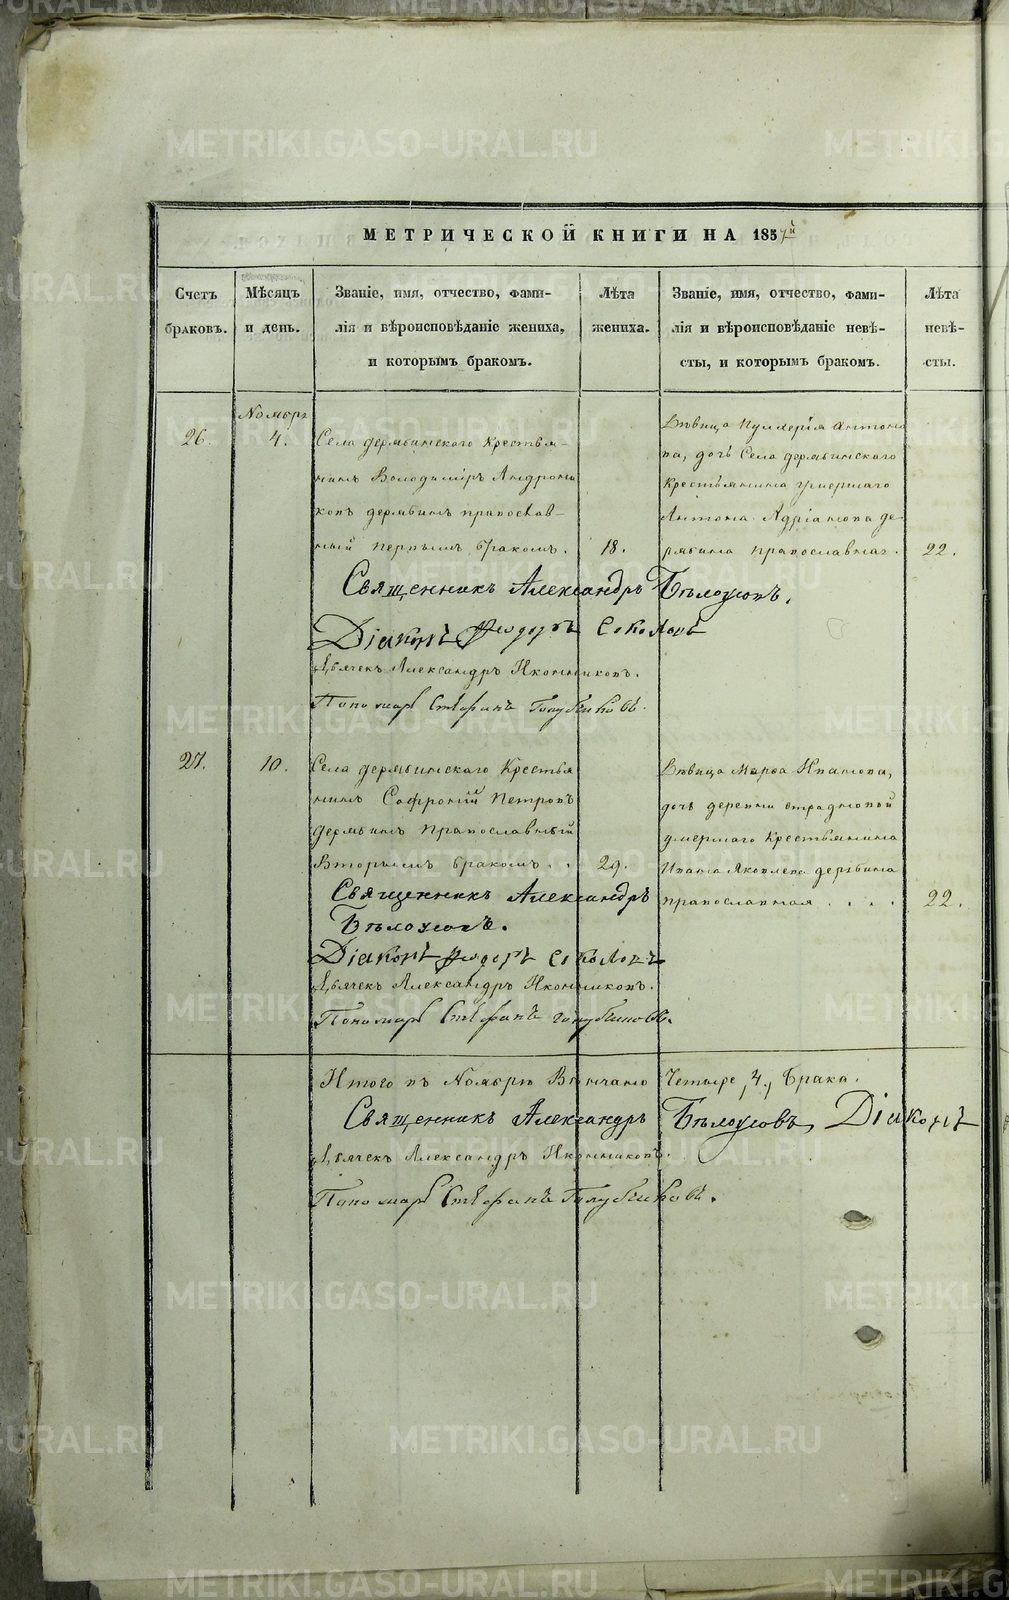 МЕТРИЧЕСКОЙ КНИГИ НА 1857й
Счетъ
браковъ.
Мѣсяцъ
и день.
Званіе, имя, отчество, фами-
лія и вѣроисповѣданіе жениха,
и которымъ бракомъ.
Лѣта
жениха.
Званіе, имя, отчество, фами-
лія и вѣроисповѣданіе невѣ-
сты, и которымъ бракомъ.
Лѣта
невѣ-
сты.
26.
Ноябрь
4.
Села дерябинскаго Крестья-
нинъ Володимiръ Андрони
ковъ дерябинъ православ-
ный первымъ бракомъ.
18.
Дѣвица Пулхерія Антоно
ва, дочь Села дерябинскаго
Крестьянина умершаго
Антона Адріанова де-
рябина православнаг.
22.
Священникъ Александръ Бѣлоусовъ.
Діаконъ Ѳеодоръ Соколовъ
Дьячекъ Александръ Иконниковъ.
Пономарь Стефанъ Голубчиковъ.
27.
10.
Села дерябинскаго Крестья
нинъ Софроній Петровъ
дерябинъ Православный
Вторымъ бракомъ . .
29.
Дѣвица Марѳа Иванова,
дочь деревни
умершаго Крестьянина
Ивана Яковлева дерябина
православная . . . .
22.
Священникъ Александръ
Бѣлоусовъ.
Діаконъ Ѳеодоръ Соколовъ
Дьячекъ Александръ Иконниковъ.
Пономарь Стефанъ Голубчиковъ.
Итого въ Ноябрѣ Вѣнчано Четыре, 4., Брака.
Священникъ Александръ Бѣлоусовъ, Діаконъ
Дьячекъ Александръ Иконниковъ.
Пономарь Стефанъ Голубчиковъ.
METRIKI.GASO-URAL.RU